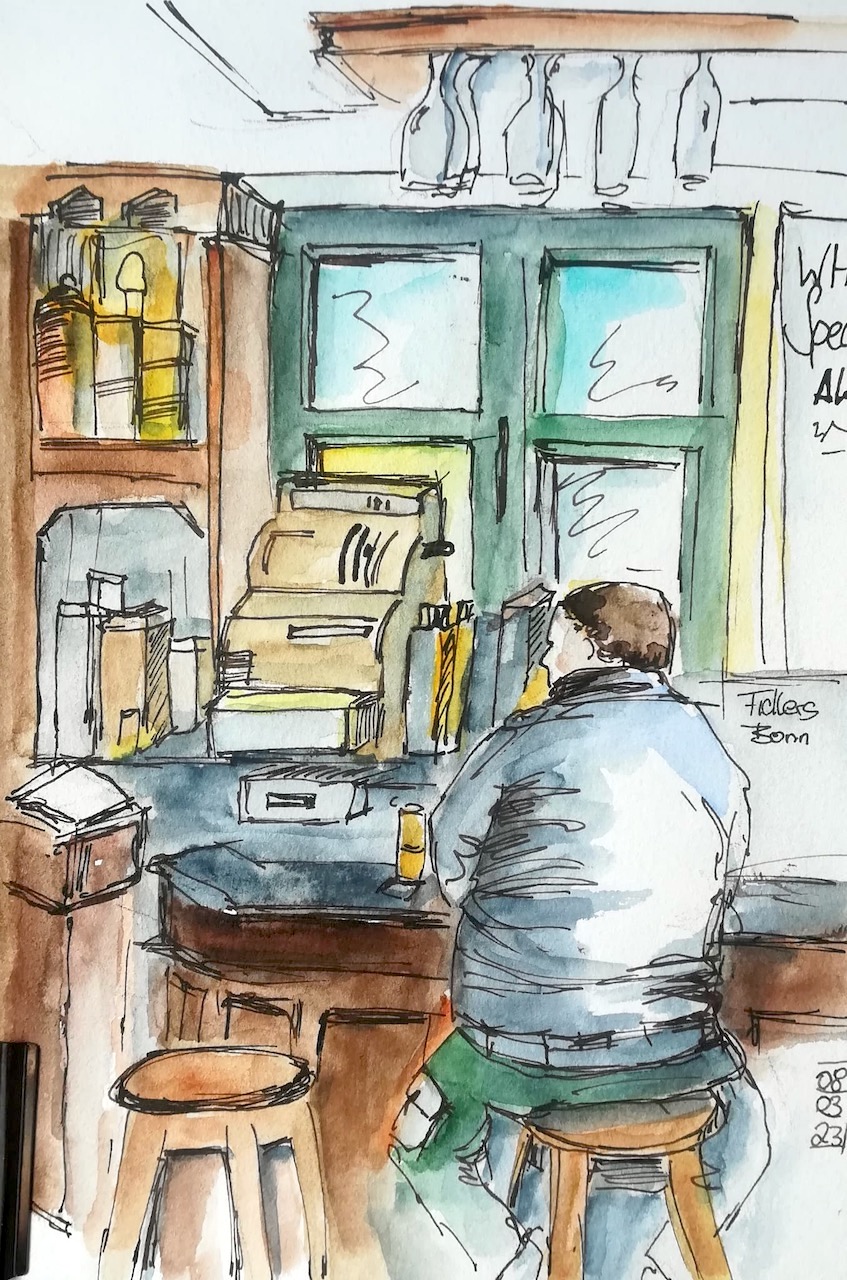 WH
Spec
AL
Fidlers
Bonn
08
03
23/